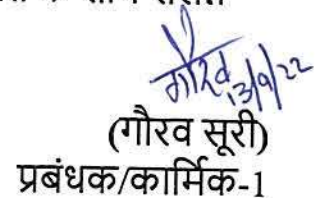 गौरव
13/9/22
(गौरव सूरी)
प्रबंधक/कार्मिक-1